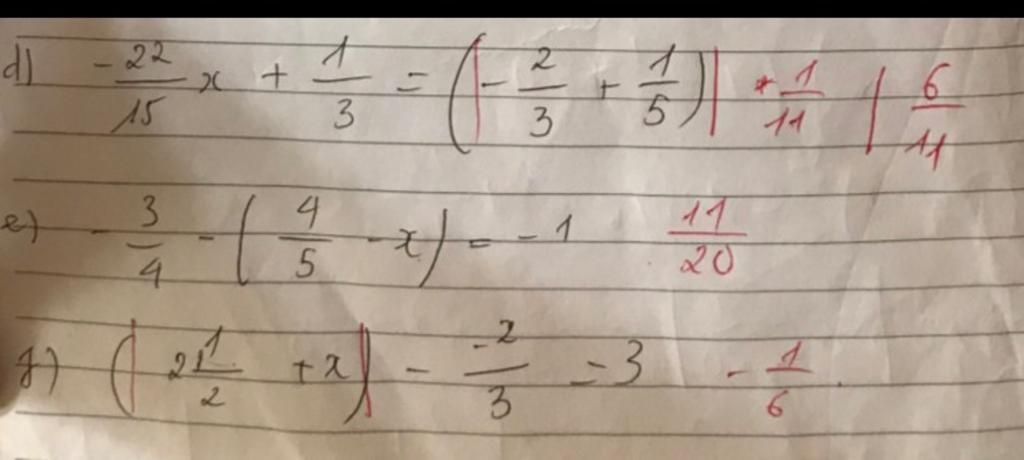 d) -22/15 x + 1/3 = (|- 2/3 + 1/5)| + 1/11 | 6/11
e) - 3/4 - ( 4/5 - x) = - 1 11/20
f) (| 2 1/2 + x)| - -2/3 = 3 - 1/6